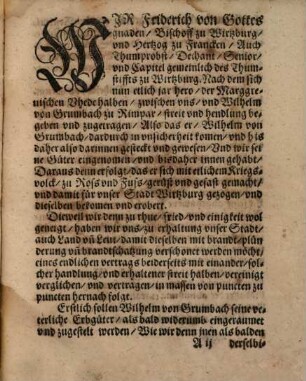 WJR Friderich von Gottes
gnaden / Bischoff zu Wirtzburg /
vnd Hertzog zu Francken / Auch
Thumprobst / Dechant / Senior /
vnd Capitel gemeinlich des Thum-
stiffts zu Wirtzburg. Nach dem sich
nun etlich jar hero / der Marggre-
uischen Vhede halben / zwischen vns / vnd Wilhelm
von Grumbach zu Rimpar / streit vnd handlung be-
geben vnd zugetragen / Also das er / Wilhelm von
Grumbach / dardurch in vnsicherheit komen / vnd bis
daher also darinnen gesteckt vnd gewesen / Vnd wir sei-
ne Güter eingenomen / vnd bis daher innen gehabt /
Daraus denn erfolgt / das er sich mit etlichem Kriegs-
volck / zu Ross vnd Fuss / gerüst vnd gefast gemacht /
vnd damit für vnser Stadt Wirtzburg gezogen / vnd
dieselben bekomen vnd erobert.
Dieweil wir denn zu rhue / fried / vnd einigkeit wol
geneigt / haben wir vns / zu erhaltung vnser Stadt /
auch Land vñ Leut / damit dieselben mit brandt / plün-
derung vñ brandtschatzung verschonet werden möcht /
eines endlichen vertrags beiderseits mit einander / sol-
cher handlung / vnd erhaltener streit halben / vereinigt
verglichen / vnd vertragen / in massen von puncten zu
puncten hernach folgt.
Erstlich sollen Wilhelm von Grumbach seine ve-
terliche Erbgüter / als bald widerumb eingeraumet
vnd zugestelt werden / Wie wir denn jnen als balden
A ij derselbi-